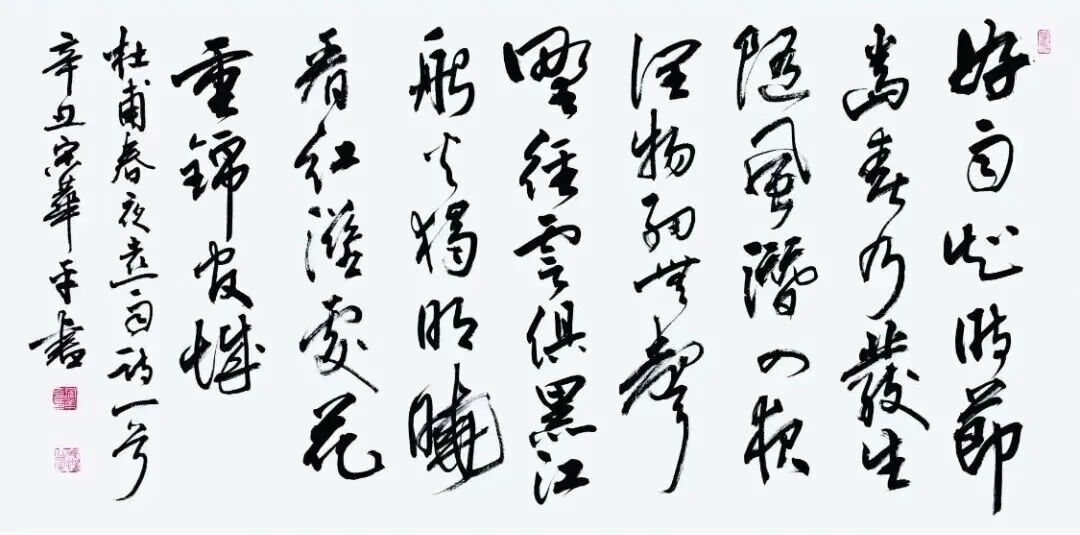 好雨知時節
當春乃發生
隨風潛入夜
潤物細無聲
野徑雲俱黑江
船火獨明曉
看紅濕處花
重錦官城
杜甫春夜喜雨詩一首
辛丑宋華平書